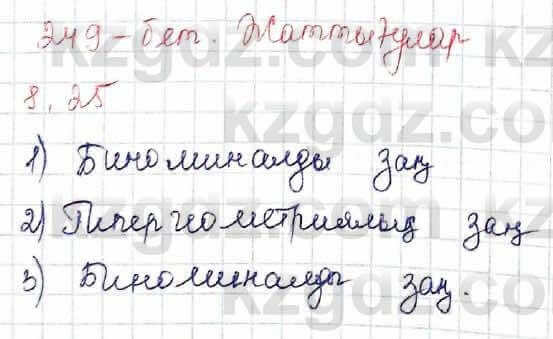 249-бет. Жаттығулар
8.25
1) Биноминалды заң
2) Гипергеометриялық заң
3) Биноминалды заң.
kzgdz.com